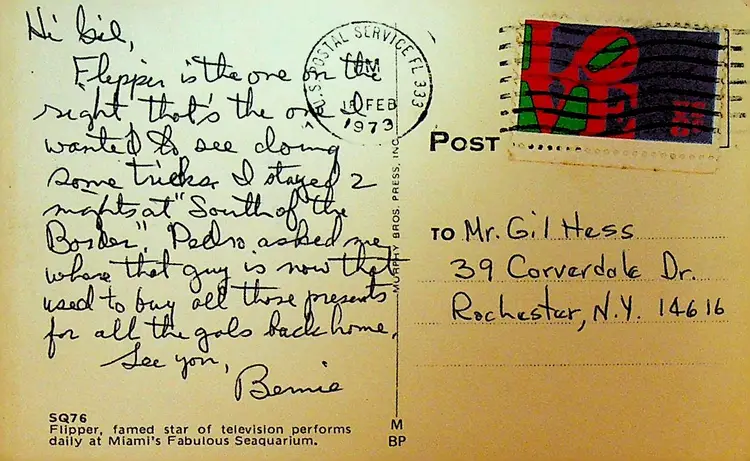 Hi Gil,
Flipper is the one on the
right that's the one I
wanted to see doing
some tricks. I stayed 2
nights at "South of the
Border". "Pedro asked me
where that guy is now that
used to buy all those presents
for all the gals back home.
See you,
Bernie
SQ76
Flipper, famed star of television performs
daily at Miami's Fabulous Seaquarium.
MURPHY BROS. PRESS, INC.
M
BP
U.S. POSTAL SERVICE FL 333
M
10 FEB
1973
LOVE
POST
TO Mr. Gil Hess
39 Corverdale Dr.
Rochester, N.Y. 14616